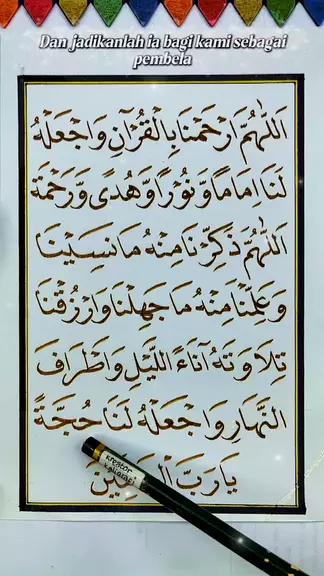 Dan jadikanlah ia bagi kami sebagai
pembela
اَللّٰهُمَّ ارْحَمْنَا بِالْقُرْآنِ وَاجْعَلْهُ
لَنَا اِمَامًا وَنُوْرًا وَهُدًى وَرَحْمَةً
اَللّٰهُمَّ ذَكِّرْنَا مِنْهُ مَا نَسِيْنَا
وَعَلِّمْنَا مِنْهُ مَا جَهِلْنَا وَارْزُقْنَا
تِلَاوَتَهُ آنَاءَ اللَّيْلِ وَاَطْرَافَ
النَّهَارِ وَاجْعَلْهُ لَنَا حُجَّةً
يَارَبَّ
kreator
kaligrafi